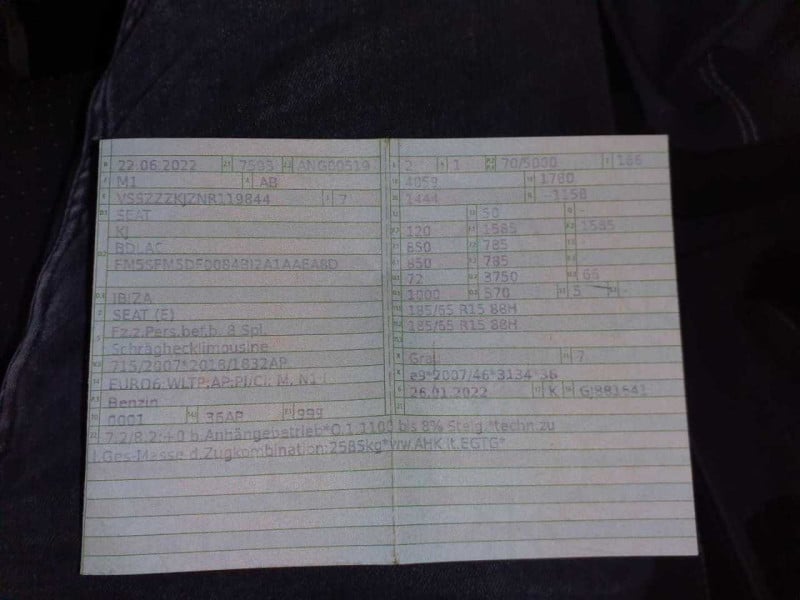 22.06.2022 7593 ANG00519
M1 AB
VSSZZZKJZNR119844 7
SEAT
KJ
BDLAC
IBIZA
SEAT (E)
Fz.z.Pers.bef.b. 8 Spl.
Schräghecklimousine
715/2007*2018/1832AP
EURO6;WLTP;AP;PI/CI; M, N1 I
Benzin
0001 36AP 999
2 1 70/5000 166
4059 1780
1444 -1158
- 50 -
120 1585 1585
850 785
850 785
72 3750 66
1000 570 5 -
185/65 R15 88H
185/65 R15 88H
Grau 7
e9*2007/46*3134*36
26.01.2022 K GJ881641
7.2/8.2:+0 b.Anhängebetrieb*O.1:1100 bis 8% Steig.*techn.zu
l.Ges-Masse d.Zugkombination:2585kg*wv.AHK lt.EGTG*